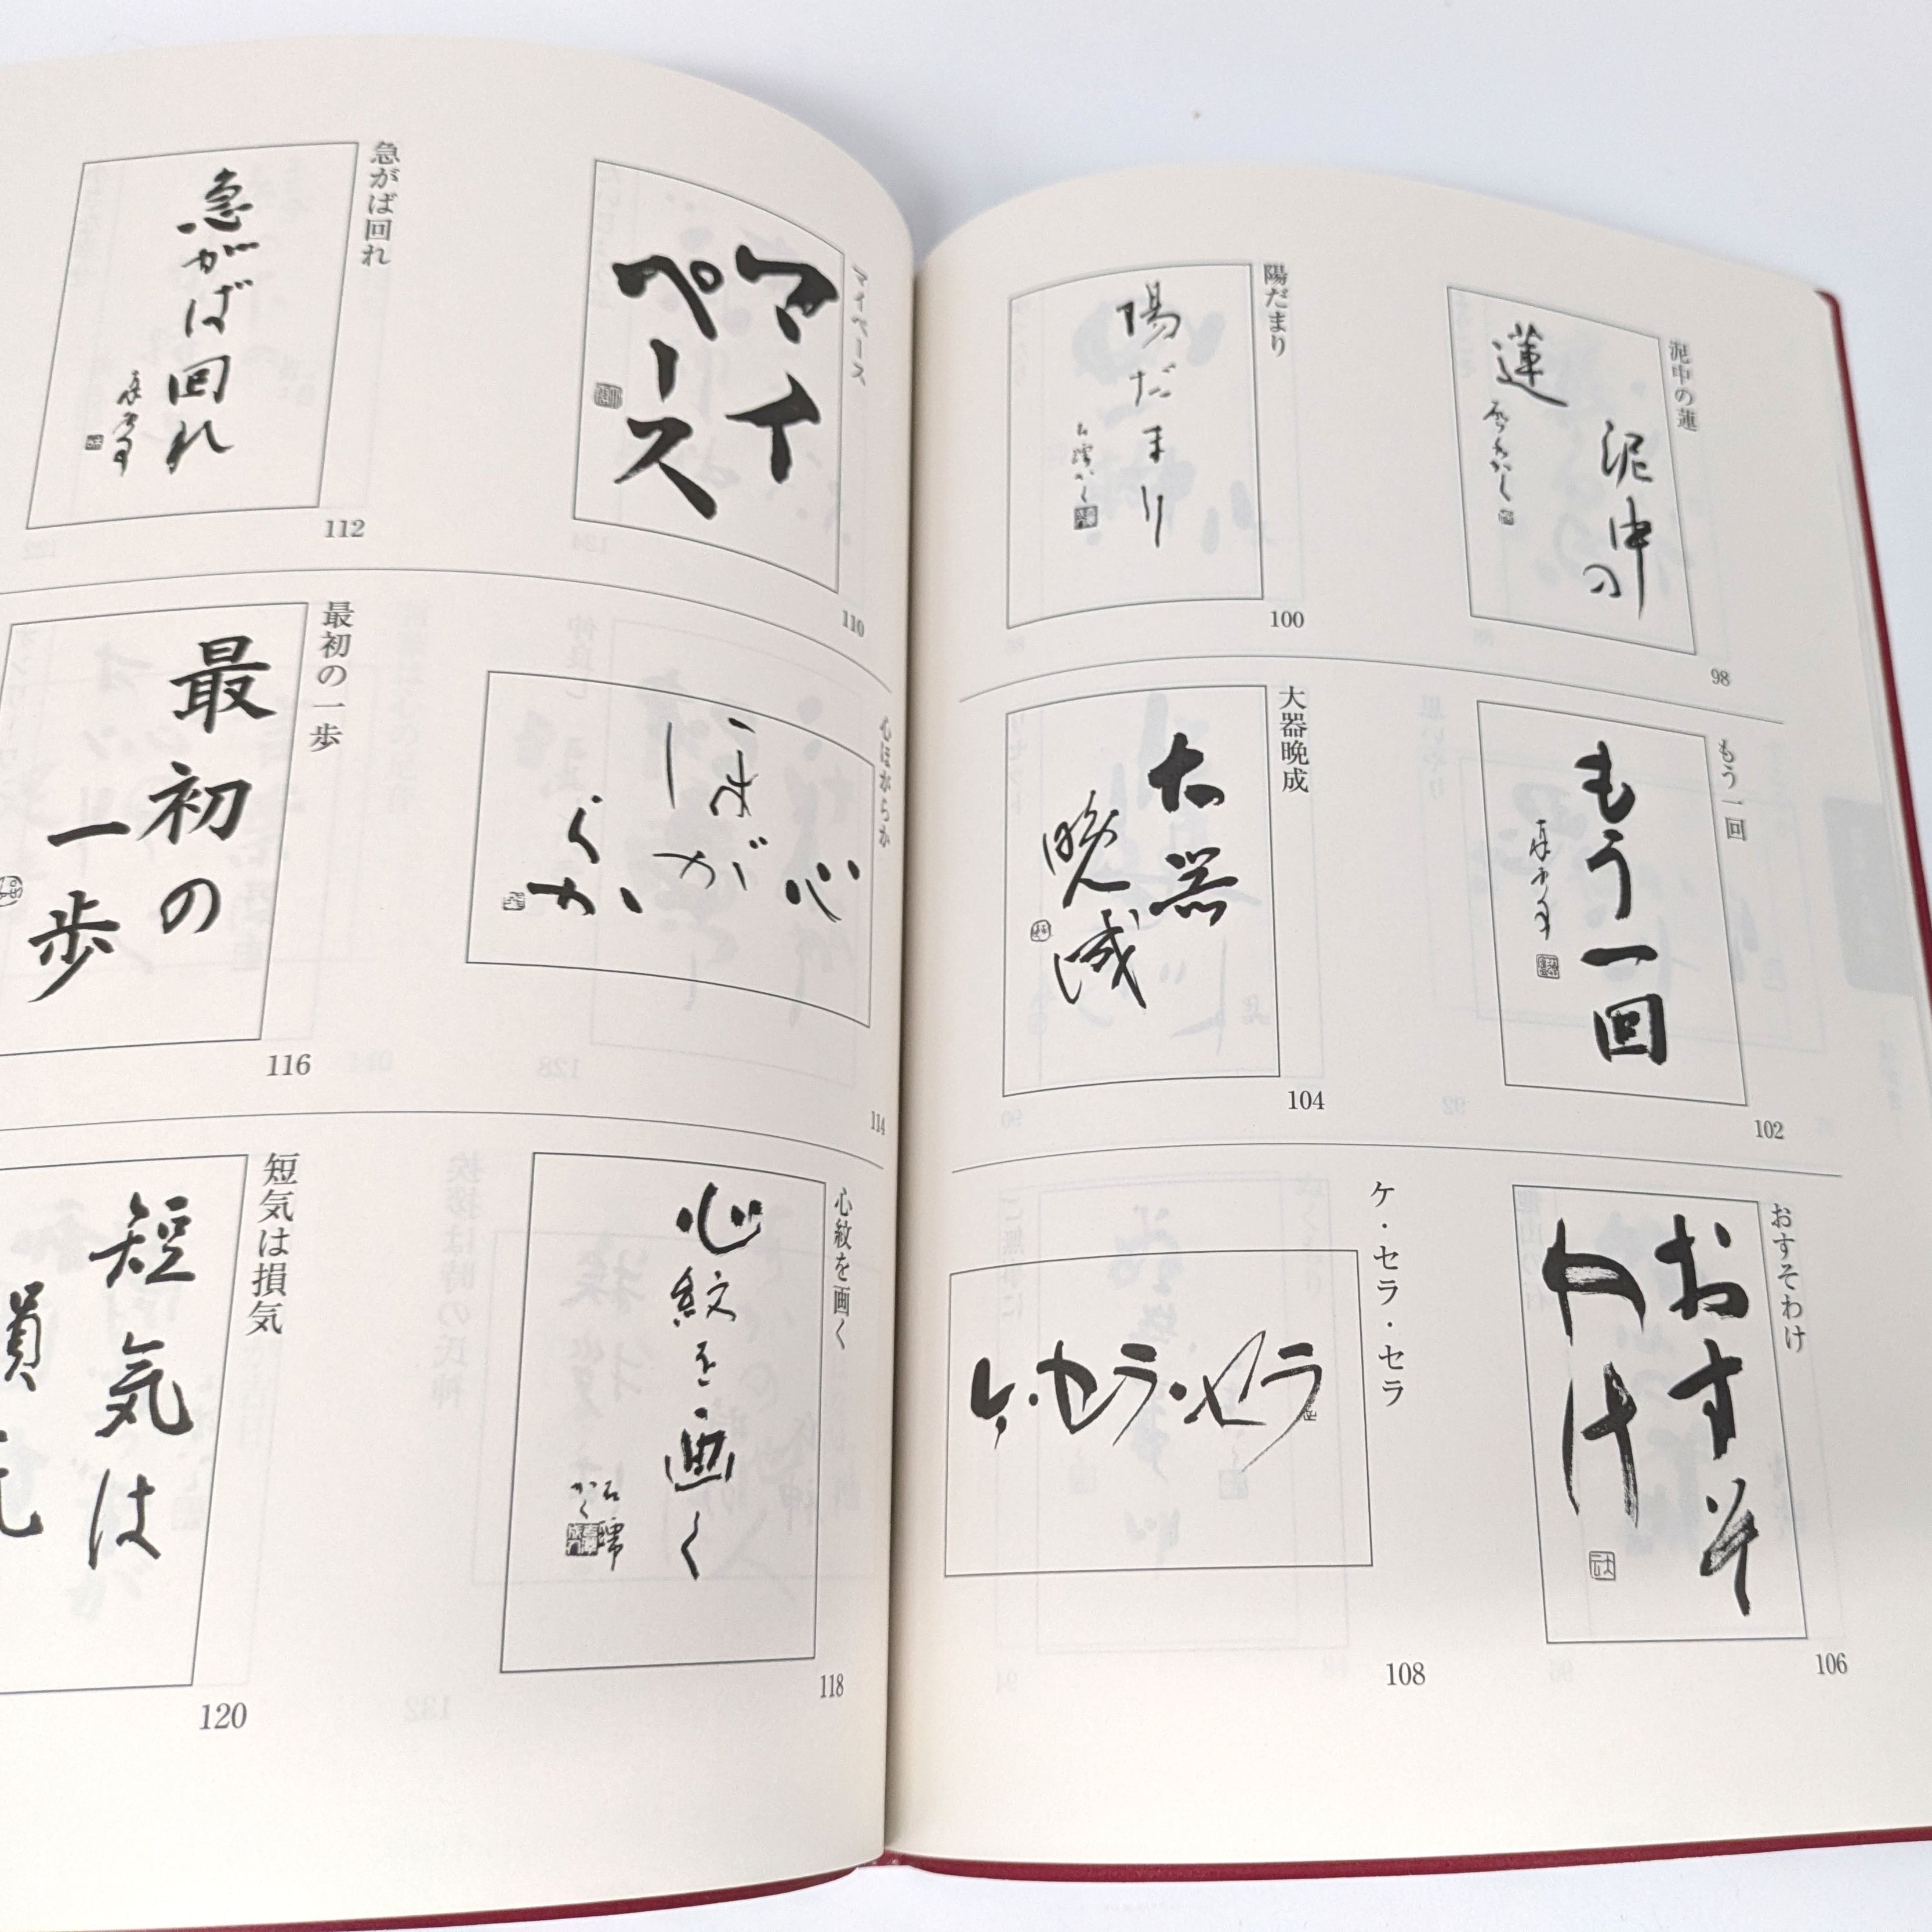 泥中の蓮
泥中の
蓮
98
陽だまり
陽だまり
100
もう一回
もう一回
102
大器晩成
大器
晩成
104
おすそわけ
おすそ
わけ
106
ケ・セラ・セラ
ケ・セラ・セラ
108
マイペース
マイ
ペース
110
急がば回れ
急がば回れ
112
心ほがらか
心
ほが
らか
114
最初の一歩
最初の
一歩
116
心紋を画く
心紋を画く
118
短気は損気
短気は
損気
120